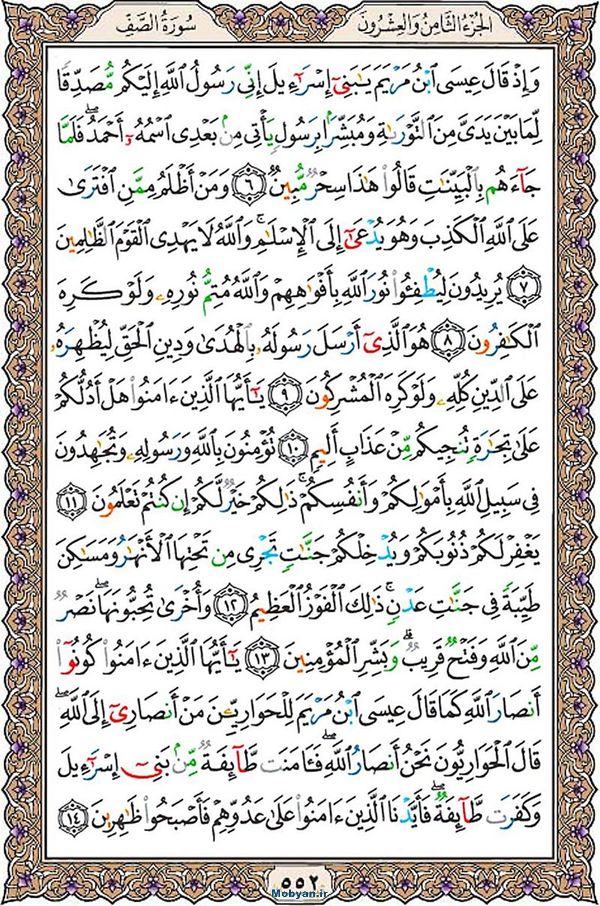 الجزء الثامن والعشرون
سورة الصف
وَإِذْ قَالَ عِيسَى ٱبْنُ مَرْيَمَ يَـٰبَنِىٓ إِسْرَٰٓءِيلَ إِنِّى رَسُولُ ٱللَّهِ إِلَيْكُم مُّصَدِّقًا
لِّمَا بَيْنَ يَدَىَّ مِنَ ٱلتَّوْرَىٰةِ وَمُبَشِّرًۢا بِرَسُولٍ يَأْتِى مِنۢ بَعْدِى ٱسْمُهُۥٓ أَحْمَدُ ۖ فَلَمَّا
جَآءَهُم بِٱلْبَيِّنَـٰتِ قَالُوا۟ هَـٰذَا سِحْرٌ مُّبِينٌ ٦ وَمَنْ أَظْلَمُ مِمَّنِ ٱفْتَرَىٰ
عَلَى ٱللَّهِ ٱلْكَذِبَ وَهُوَ يُدْعَىٰٓ إِلَى ٱلْإِسْلَـٰمِ ۚ وَٱللَّهُ لَا يَهْدِى ٱلْقَوْمَ ٱلظَّـٰلِمِينَ
٧ يُرِيدُونَ لِيُطْفِـُٔوا۟ نُورَ ٱللَّهِ بِأَفْوَٰهِهِمْ وَٱللَّهُ مُتِمُّ نُورِهِۦ وَلَوْ كَرِهَ
ٱلْكَـٰفِرُونَ ٨ هُوَ ٱلَّذِىٓ أَرْسَلَ رَسُولَهُۥ بِٱلْهُدَىٰ وَدِينِ ٱلْحَقِّ لِيُظْهِرَهُۥ
عَلَى ٱلدِّينِ كُلِّهِۦ وَلَوْ كَرِهَ ٱلْمُشْرِكُونَ ٩ يَـٰٓأَيُّهَا ٱلَّذِينَ ءَامَنُوا۟ هَلْ أَدُلُّكُمْ
عَلَىٰ تِجَـٰرَةٍ تُنجِيكُم مِّنْ عَذَابٍ أَلِيمٍ ١٠ تُؤْمِنُونَ بِٱللَّهِ وَرَسُولِهِۦ وَتُجَـٰهِدُونَ
فِى سَبِيلِ ٱللَّهِ بِأَمْوَٰلِكُمْ وَأَنفُسِكُمْ ۚ ذَٰلِكُمْ خَيْرٌ لَّكُمْ إِن كُنتُمْ تَعْلَمُونَ ١١
يَغْفِرْ لَكُمْ ذُنُوبَكُمْ وَيُدْخِلْكُمْ جَنَّـٰتٍ تَجْرِى مِن تَحْتِهَا ٱلْأَنْهَـٰرُ وَمَسَـٰكِنَ
طَيِّبَةً فِى جَنَّـٰتِ عَدْنٍ ۚ ذَٰلِكَ ٱلْفَوْزُ ٱلْعَظِيمُ ١٢ وَأُخْرَىٰ تُحِبُّونَهَا ۖ نَصْرٌ
مِّنَ ٱللَّهِ وَفَتْحٌ قَرِيبٌ ۗ وَبَشِّرِ ٱلْمُؤْمِنِينَ ١٣ يَـٰٓأَيُّهَا ٱلَّذِينَ ءَامَنُوا۟ كُونُوٓا۟
أَنصَارَ ٱللَّهِ كَمَا قَالَ عِيسَى ٱبْنُ مَرْيَمَ لِلْحَوَارِيِّـۧنَ مَنْ أَنصَارِىٓ إِلَى ٱللَّهِ ۖ
قَالَ ٱلْحَوَارِيُّونَ نَحْنُ أَنصَارُ ٱللَّهِ ۖ فَـَٔامَنَت طَّآئِفَةٌ مِّنۢ بَنِىٓ إِسْرَٰٓءِيلَ
وَكَفَرَت طَّآئِفَةٌ ۖ فَأَيَّدْنَا ٱلَّذِينَ ءَامَنُوا۟ عَلَىٰ عَدُوِّهِمْ فَأَصْبَحُوا۟ ظَـٰهِرِينَ ١٤
٥٥٢
Mobyan.ir